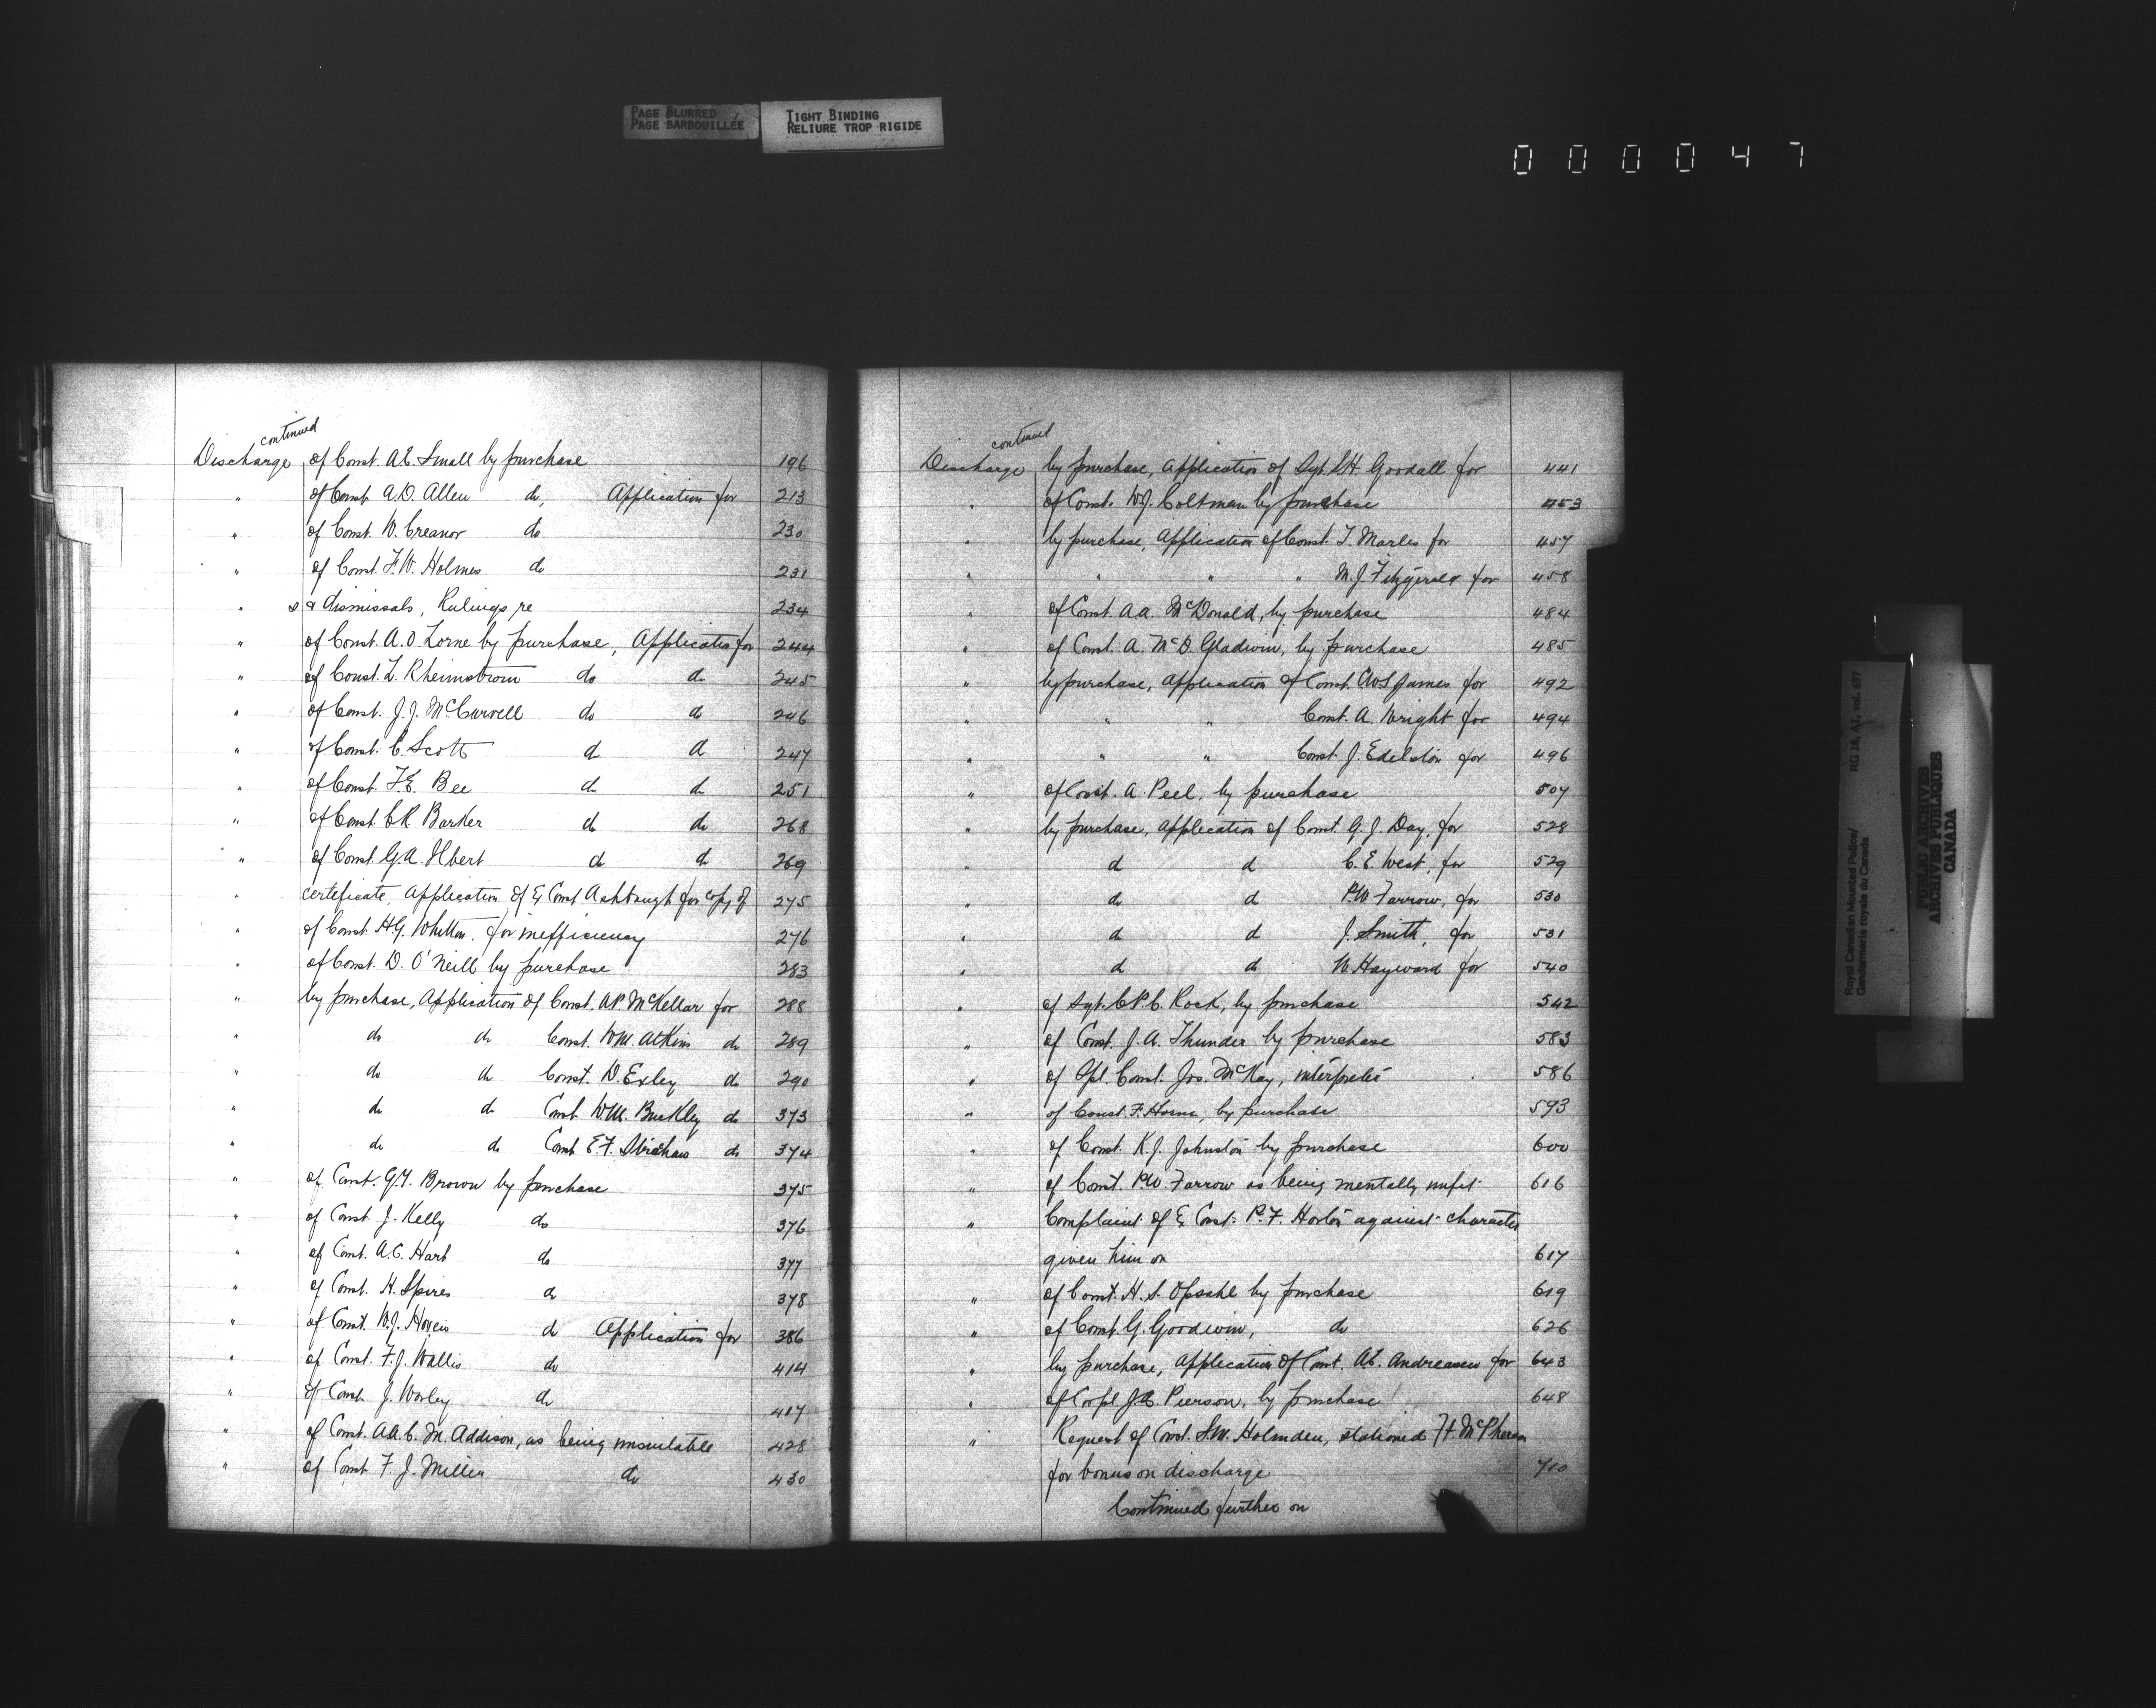 PAGE BLURRED
PAGE BARBOUILLÉE
TIGHT BINDING
RELIURE TROP RIGIDE
000047
continued
Discharge of Const. A.E. Small by purchase 196
" of Const. A.D. Allen do, Application for 213
" of Const. W. Creanor do 230
" of Const. F.W. Holmes do 231
" s & dismissals, Rulings re 234
" of Const. A.O. Lorne by purchase, Application for 244
" of Const. L. Rheimstrom do do 245
" of Const. J.J. McCurvell do do 246
" of Const. C. Scott do do 247
" of Const. F.E. Bee do do 251
" of Const. C.R. Barker do do 268
" of Const. G.A. Hbert do do 269
" certificate, Application of Ex Const Ashbaugh for copy of 275
" of Const. H.G. Whitton, for inefficiency 276
" of Const. D. O'Neill by purchase 283
" by purchase, Application of Const. A.P. McKellar for 288
" do do Const. W.M. Atkins do 289
" do do Const. D. Exley do 290
" do do Const. W.M. Buckley do 373
" do do Const. E.F. do 374
" of Const. G.Y. Brown by purchase 375
" of Const. J. Kelly do 376
" of Const. A.C. Hart do 377
" of Const. H. Spires do 378
" of Const. W.J. Howes do Application for 386
" of Const. F.J. Wallis do 414
" of Const. J. Worley do 417
" of Const. A.A.C. M. Addison, as being unsuitable 428
" of Const. F. J. Miller do 430
continued
Discharge by purchase, Application of Sgt. S.H. Goodall for 441
" of Const. W.J. Coltman by purchase 453
" by purchase, Application of Const. T. Marles for 457
" " " " M.J. Fitzgerald for 458
" of Const. A.A. McDonald, by purchase 484
" of Const. A. McD. Gladwin, by purchase 485
" by purchase, Application of Const. C.W.S. James for 492
" " " Const. A. Wright for 494
" " " Const. J. Edelston for 496
" of Const. A. Peel, by purchase 507
" by purchase, Application of Const. G.J. Day, for 528
" do do C.E. West, for 529
" do do P.W. Farrow, for 530
" do do J. Smith, for 531
" do do W. Hayward for 540
" of Sgt. C.P.C. Rock, by purchase 542
" of Const. J.A. Thunder by purchase 583
" of Spl. Const. Jos. McKay, interpreter 586
" of Const. F. Horne, by purchase 593
" of Const. K.J. Johnston by purchase 600
" of Const. P.W. Farrow as being mentally unfit 616
" Complaint of Ex Const. P.F. Horton against character
given him on 617
" of Const. H.S. Opsahl by purchase 619
" of Const. G. Goodwin, do 626
" by purchase, Application of Const. A.E. Andreasen for 643
" of Corpl. J.C. Pierson, by purchase 648
" Request of Const. S.W. Holmden, stationed Ft. McPherson
for bonus on discharge 710
Continued further on
Royal Canadian Mounted Police/
Gendarmerie royale du Canada
RG 18, A1, vol. 697
PUBLIC ARCHIVES
ARCHIVES PUBLIQUES
CANADA